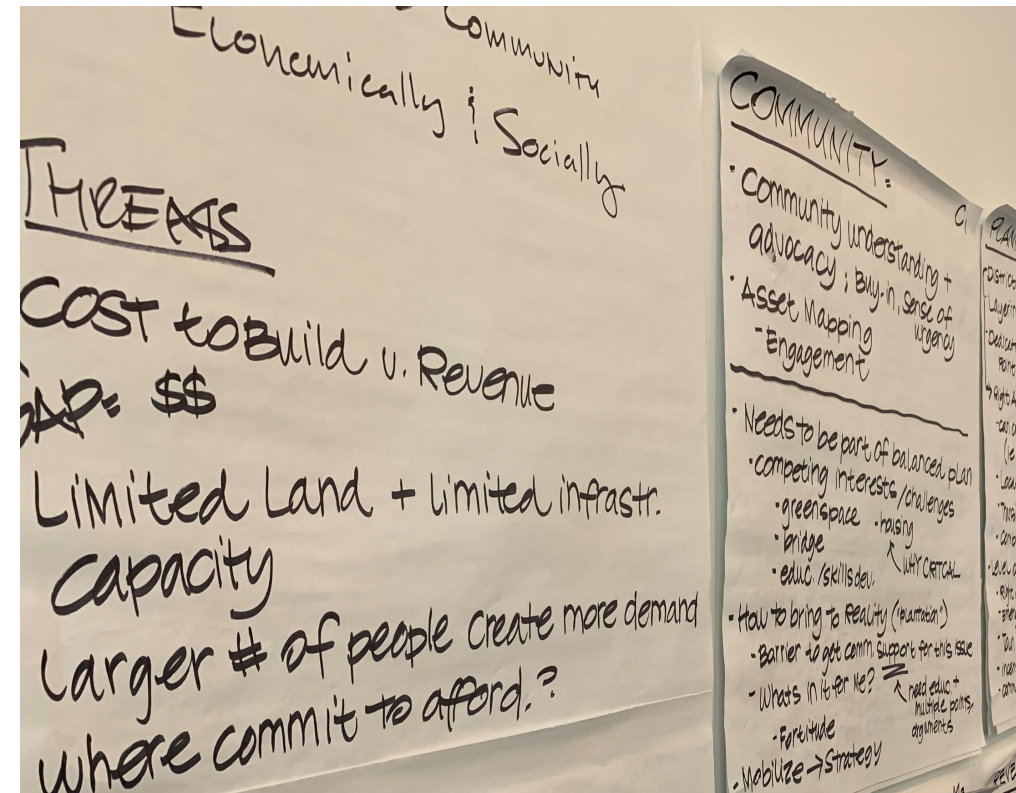 Community
Economically & Socially
THREATS
COST to Build v. Revenue
GAP: $$
Limited Land + limited infrastr.
capacity
Larger # of people create more demand
where commit to afford.?
COMMUNITY:
C1
• Community understanding +
advocacy ; Buy-in, sense of
urgency
• Asset Mapping
- Engagement
• Needs to be part of balanced plan
• competing interests/challenges
• greenspace • housing
• bridge
WHY CRITICAL
• educ./skills dev.
• How to bring to Reality ("plantation")
• Barrier to get comm. support for this issue
• Whats in it for Me?
need educ. +
multiple points,
arguments
• Fortitude
• Mobilize → Strategy